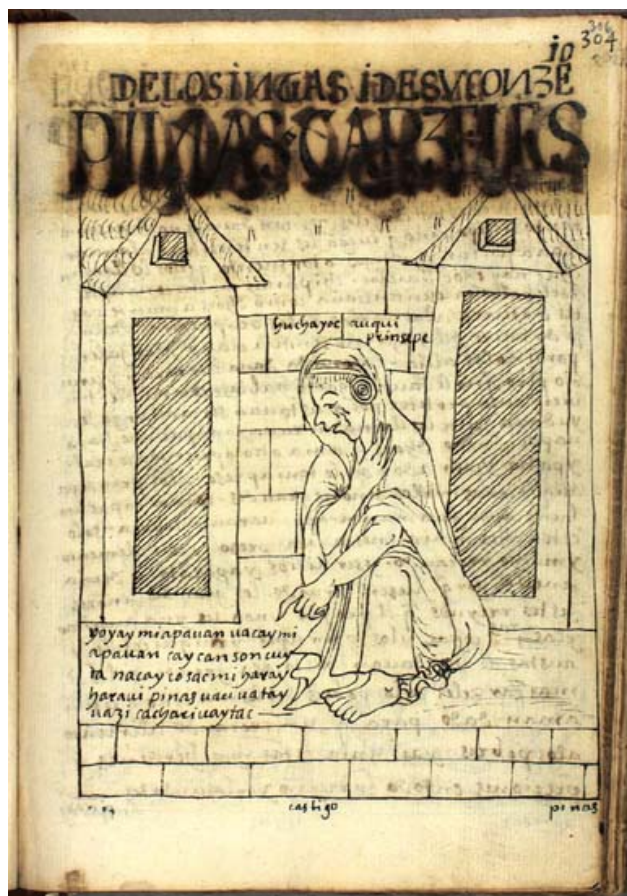 306
304
DE LOS INGAS I DE SV CONZE
PINAS CARZELES
huchayoc auqui
prinsepe
poyaymi apauan uacaymi
apauan cay can soncuy
ta nacaycosac mi haray
haraui pinas uau uatay
uazi cachariuaytac
castigo
pinas